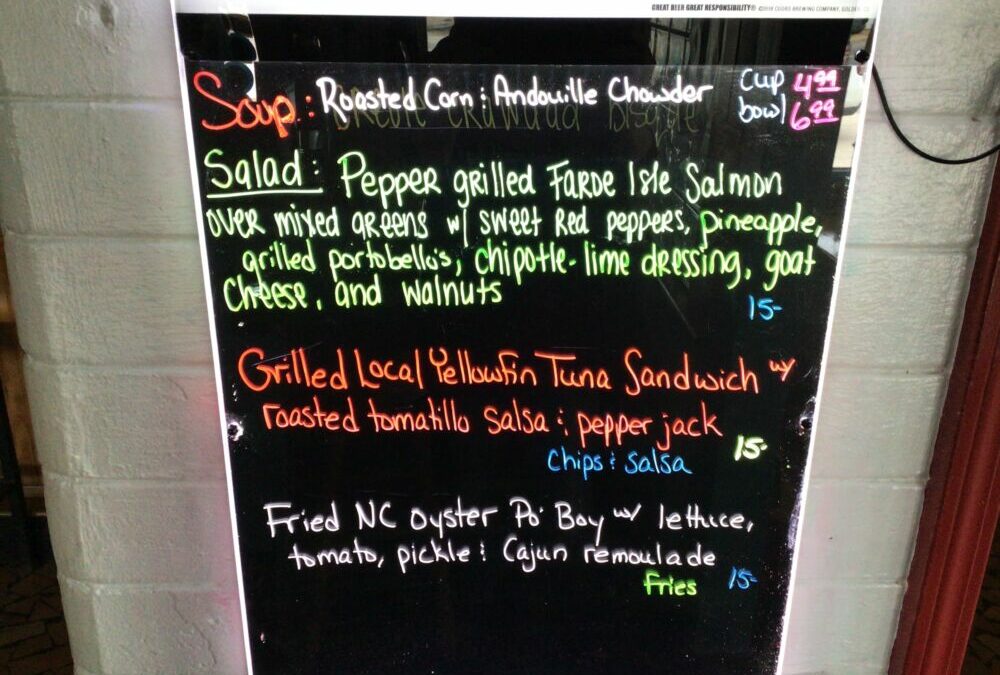 GREAT BEER GREAT RESPONSIBILITY®
Soup: Roasted Corn & Andouille Chowder cup 4.99
bowl 6.99
Salad: Pepper grilled Faroe Isle Salmon
over mixed greens w/ sweet red peppers, pineapple,
grilled portobello's, chipotle-lime dressing, goat
cheese, and walnuts
15-
Grilled Local Yellowfin Tuna Sandwich w/
roasted tomatillo salsa & pepper jack
15-
chips & salsa
Fried NC oyster Po' Boy w/ lettuce,
tomato, pickle & Cajun remoulade
Fries 15-